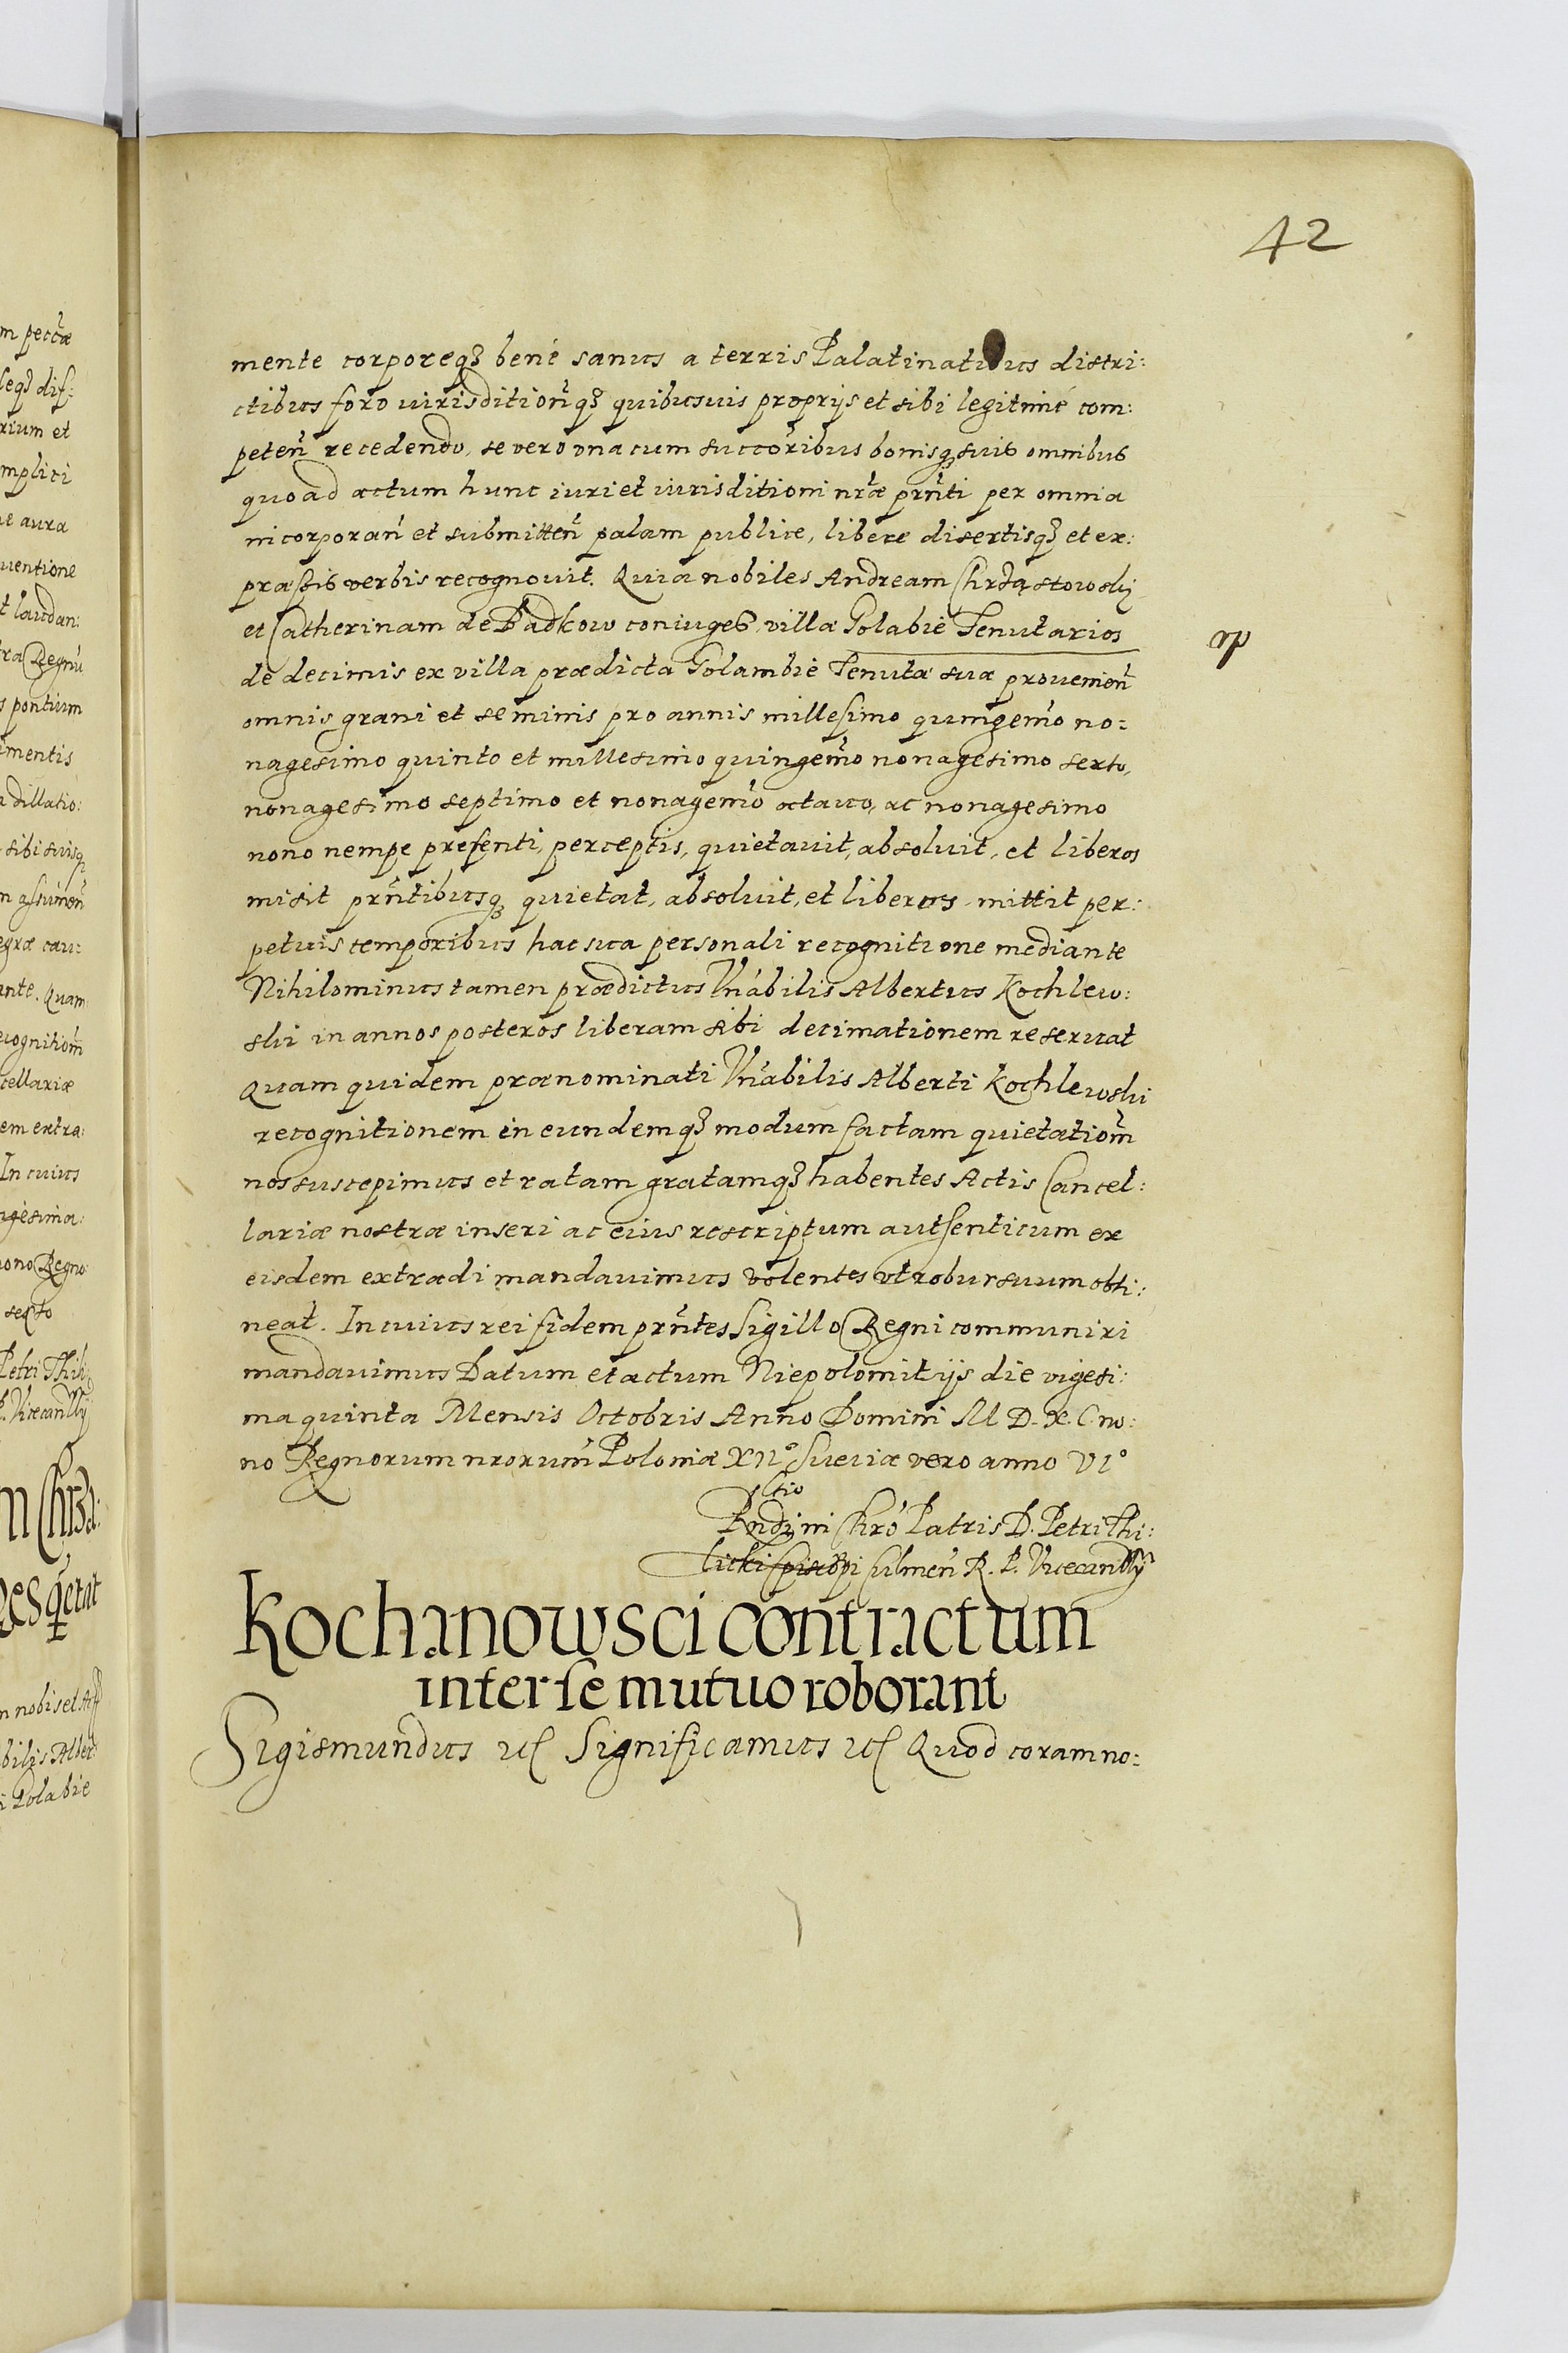 42
mente corporeq3 benè sanus a terris Palatinatibus distri:
ctibus foro iurisdition̄q3 quibusuis proprijs et sibi legitimè com:
peten̄ recedendo, se vero vna cum succōribus bonisq3 suis omnibus
quo ad actum hunc iuri et iurisditioni nr̄æ prn̄ti per omnia
incorporan̄ et submitten̄ palam publice, libere disertisq3 et ex:
præssis verbis recognouit. Quia nobiles Andream Chrząstowsky
et Catherinam de Badkow coniuges villæ Golabie Tenutarios
de decimis ex villa prædicta Golambie Tenutæ suæ prouenien̄
omnis grani et seminis pro annis millesimo quingemō no:
nagesimo quinto et millesimo quingemō nonagesimo sexto,
nonagesimo septimo et nonagemō octauo, ac nonagesimo
nono nempe presenti, perceptis, quietauit, absoluit, et liberos
misit prn̄tibusq3 quietat, absoluit, et liberos mittit per:
petuis temporibus hac sua personali recognitione mediante
Nihilominus tamen prædictus Vnābilis Albertus Kochlew:
ski in annos posteros liberam sibi decimationem reseruat
Quam quidem prænominati Vnābilis Alberti Kochlewski
recognitionem in eundemq3 modum factam quietatiōm
nos suscepimus et ratam gratamq3 habentes Actis Cancel:
lariæ nostræ inseri ac eius rescriptum autsenticum ex
eisdem extradi mandauimus volentes vt robur suum obti:
neat. In cuius rei fidem prn̄tes Sigillo Regni communiri
mandauimus Datum et actum Niepolomitijs die vigesi:
ma quinta Mensis Octobris Anno Domini M D. X. C no:
no Regnorum nrorum̄ Poloniæ XII° Sueciæ vero anno VI°
Rndi in Chrō Patris D. Petri Thi:
licki Episcopi Culmen̄ R. P. Vicecanllŷ
Kochanowsci contractum
inter se mutuo roborant
Sigismundus etc Significamus etc Quod coram no: